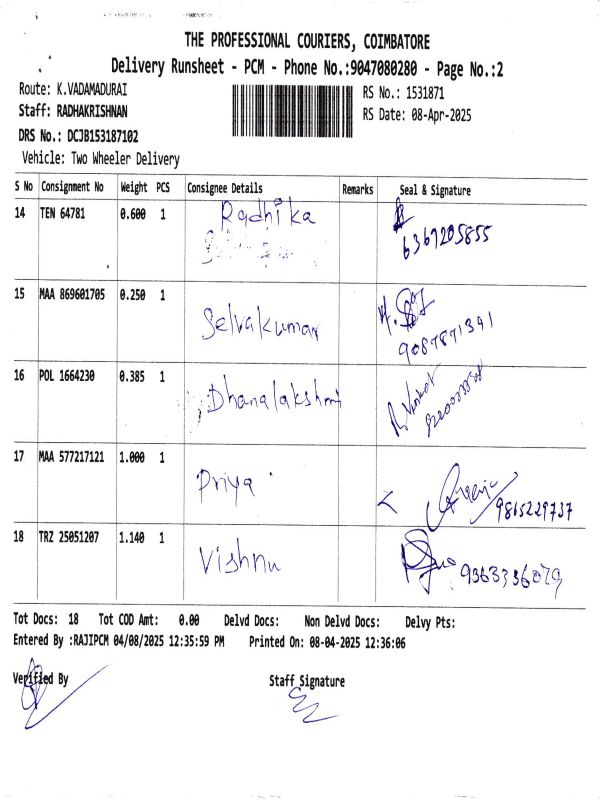 THE PROFESSIONAL COURIERS, COIMBATORE
Delivery Runsheet - PCM - Phone No.:9047080280 - Page No.:2
Route: K.VADAMADURAI
RS No.: 1531871
Staff: RADHAKRISHNAN
RS Date: 08-Apr-2025
DRS No.: DCJB153187102
Vehicle: Two Wheeler Delivery
S No Consignment No Weight PCS Consignee Details Remarks Seal & Signature
14 TEN 64781 0.600 1 Radhika
6367205855
15 MAA 869601705 0.250 1 Selvakumar
9087871391
16 POL 1664230 0.385 1 Dhanalakshmi
17 MAA 577217121 1.000 1 Priya
9865229737
18 TRZ 25051207 1.140 1 Vishnu
9363336079
Tot Docs: 18 Tot COD Amt: 0.00 Delvd Docs: Non Delvd Docs: Delvy Pts:
Entered By :RAJIPCM 04/08/2025 12:35:59 PM Printed On: 08-04-2025 12:36:06
Verified By Staff Signature